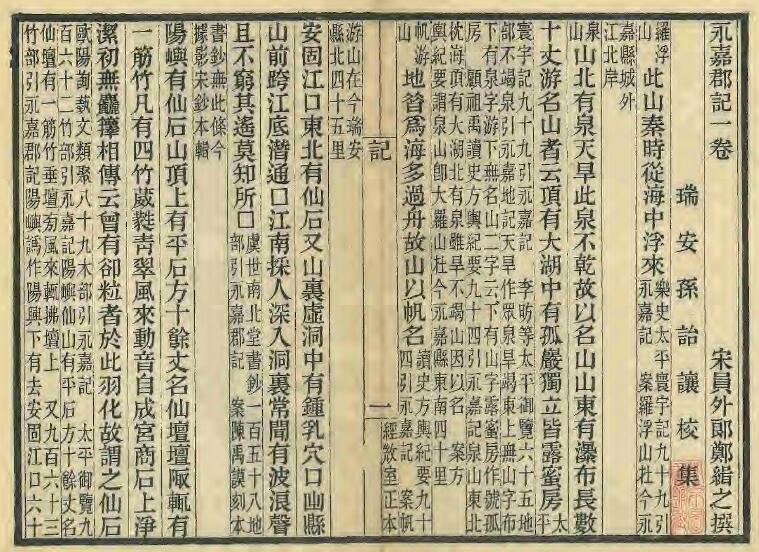 永嘉郡記一卷 宋員外郎鄭緝之撰
瑞安孫詒讓校集
羅浮山 此山秦時從海中浮來 樂史太平寰宇記九十九引
永嘉記 案羅浮山在今永
嘉縣城外
江北岸
泉山 山北有泉天旱此泉不乾故以名山山東有瀑布長數
十丈游名山者云頂有大湖中有孤巖獨立皆露蜜房 太平
寰宇記九十九引永嘉記 李昉等太平御覽六十五地
部不竭泉引永嘉地記天旱作眾泉旱竭東上無山字布
下有泉字游下無名山二字云下有山字露蜜房作號孤
房 顧祖禹讀史方輿紀要九十四引永嘉記泉山東北
枕海頂有大湖北有泉雖旱不竭山因以名 案方
輿紀要謂泉山卽大羅山在今永嘉縣東南四十里
帆游山 地昔爲海多過舟故山以帆名 讀史方輿紀要九十
四引永嘉記 案帆
游山在今瑞安
縣北四十五里
記 一
安固江口東北有仙石又山裏虛洞中有鍾乳穴口幽懸
山前跨江底潛通□江南採人深入洞裏常聞有波浪聲
且不窮其遙莫知所□ 虞世南北堂書鈔一百五十八地
部引永嘉郡記 案陳禹謨刻本
書鈔無此條今
據影宋鈔本輯
陽嶼有仙石山頂上有平石方十餘丈名仙壇壇陬輒有
一筋竹凡有四竹葳蕤靑翠風來動音自成宮商石上淨
潔初無麤籜相傳云曾有卻粒者於此羽化故謂之仙石
歐陽詢藝文類聚八十九木部引永嘉記 太平御覽九
百六十二竹部引永嘉記陽嶼仙山有平石方十餘丈名
仙壇有一筋竹垂壇旁風來輒拂壇上 又九百六十三
竹部引永嘉郡記陽嶼譌作陽興下有去安固江口六十